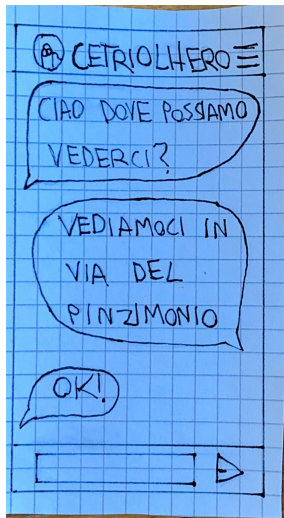 CETRIOLHERO
CIAO DOVE POSSIAMO
VEDERCI?
VEDIAMOCI IN
VIA DEL
PINZIMONIO
OK!